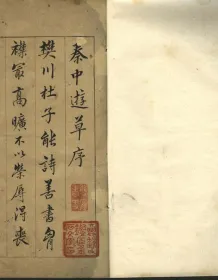 秦中遊草序
樊川杜子能詩善書胷
襟最高曠不以榮辱得喪